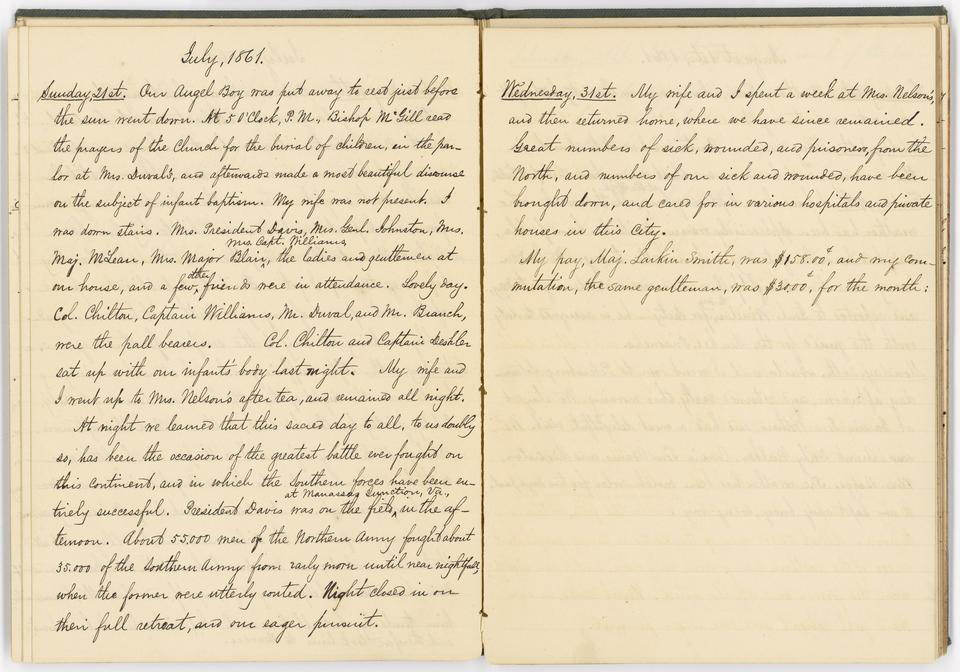 July, 1861.
Sunday, 21st. Our Angel Boy was put away to rest just before
the sun went down. At 5 O'Clock, P.M., Bishop McGill read
the prayers of the Church for the burial of children, in the par-
lor at Mrs. Duval's, and afterwards made a most beautiful discourse
on the subject of infant baptism. My wife was not present. I
was down stairs. Mrs. President Davis, Mrs. Genl. Johnston, Mrs.
Mrs. Capt. Williams,
Maj. McLean, Mrs. Major Blair, ‸ the ladies and gentlemen at
other
our house, and a few ‸ friends were in attendance. Lovely day.
Col. Chilton, Captain Williams, Mr. Duval, and Mr. Branch,
were the pall bearers. Col. Chilton and Captain Deshler
sat up with our infant's body last night. My wife and
I went up to Mrs. Nelson's after tea, and remained all night.
At night we learned that this sacred day to all, to us doubly
so, has been the occasion of the greatest battle ever fought on
this continent, and in which the Southern forces have been en-
at Manassas Junction, Va.,
tirely successful. President Davis was on the field ‸ in the af-
ternoon. About 55,000 men of the Northern Army fought about
35.000 of the Southern Army from early morn until near nightfall,
when the former were utterly routed. Night closed in on
their full retreat, and our eager pursuit.
Wednesday, 31st. My wife and I spent a week at Mrs. Nelson's,
and then returned home, where we have since remained.
Great numbers of sick, wounded, and prisoners, from the
North, and numbers of our sick and wounded, have been
brought down, and cared for in various hospitals and private
houses in this City.
My pay, Maj. Larkin Smith, was $158.00, and my com-
mutation, the same gentleman, was $30.00, for the month: